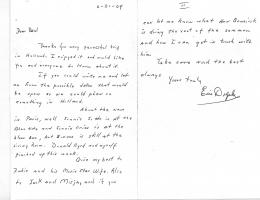 6-21-64
Dear Paul
Thanks for very successful trip
in Holland. I enjoyed it and would like
for everyone to know about it.
If you could write me and let
me know the possible dates that would
be open so you could place on
something in Holland.
About the news
in Paris, well Sonnie Stitt is at the
Blue Note and Sonnie Criss is at the
blue but is still at the
living Room. Donald Byrd and myself
finished up this week.
Give my best to
and his Music Star Wife. Also
to Jack and and if you
II
can let me know what Dear
is doing the rest of the summer
and how I can get in touch with
him
Take care and the best
always
Yours truly
Eric Dolphy